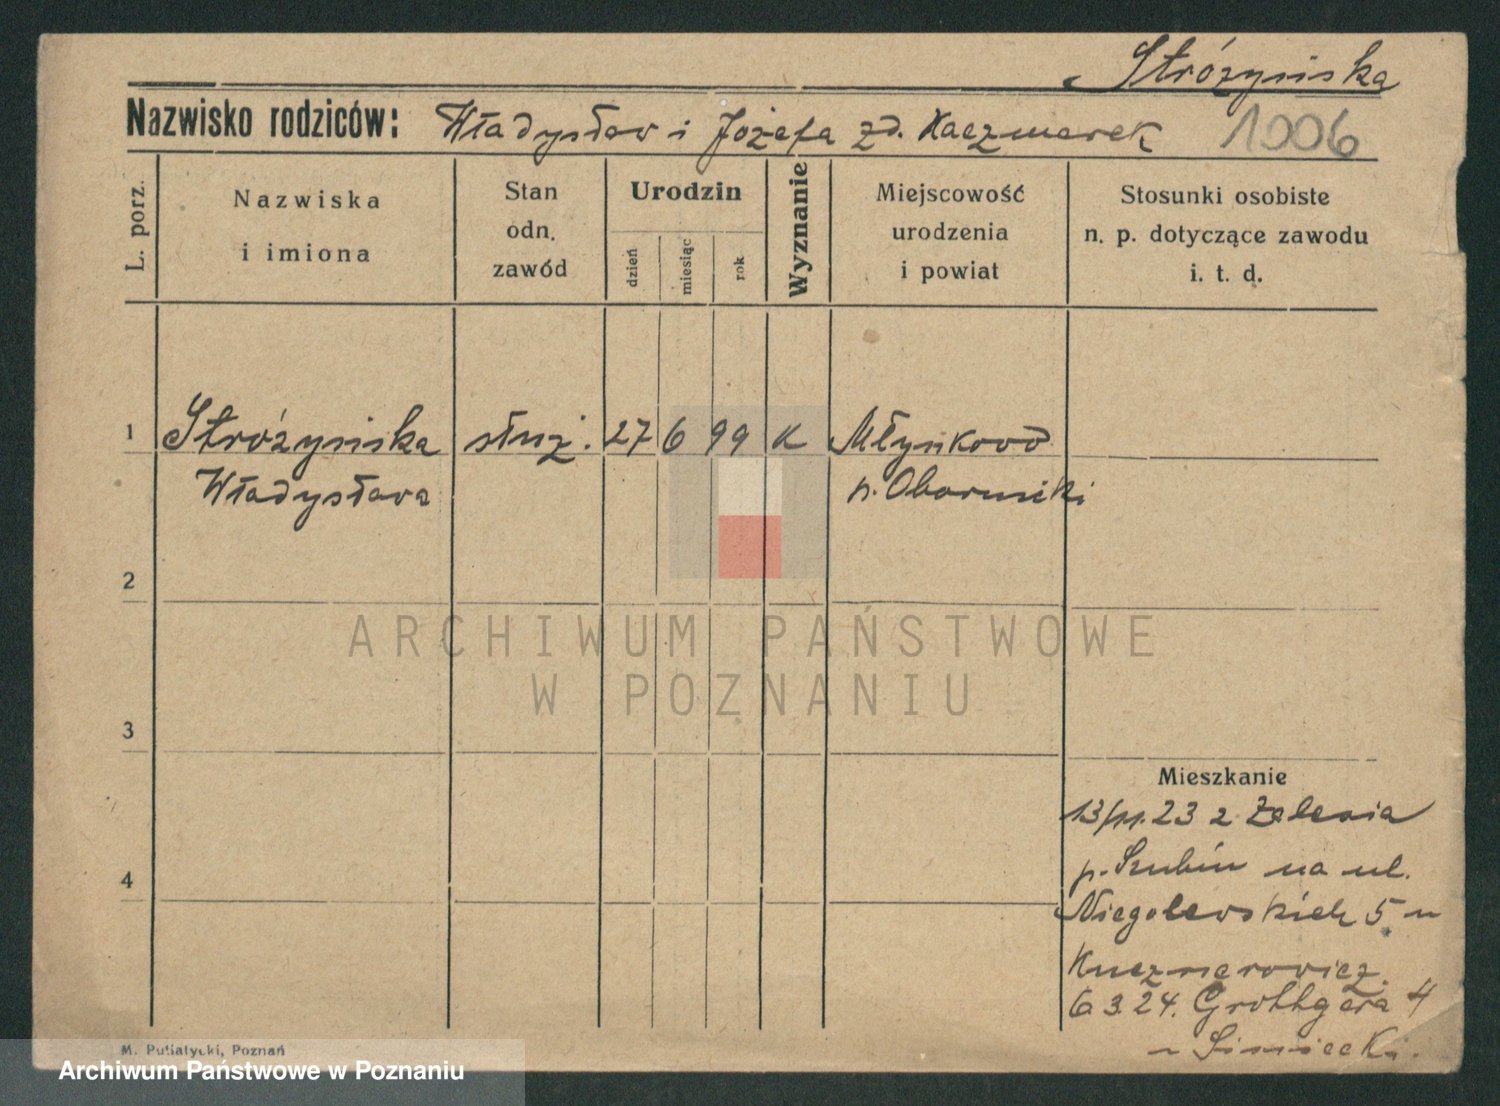 Stróżyńska
Nazwisko rodziców: Władysław i Józefa zd. Kaczmarek 1006
L. porz.
Nazwiska
i imiona
Stan
odn.
zawód
Urodzin
dzień
miesiąc
rok
Wyznanie
Miejscowość
urodzenia
i powiat
Stosunki osobiste
n. p. dotyczące zawodu
i. t. d.
1 Stróżyńska służ. 27 6 99 K Młynkowo
Władysława p. Oborniki
2
ARCHIWUM PAŃSTWOWE
W POZNANIU
3
Mieszkanie
13/11.23 z
4
p. Szubin na ul.
Niegolewskich 5 u
6.3.24. Grottgera 4
u
M. Putiatycki, Poznań
Archiwum Państwowe w Poznaniu